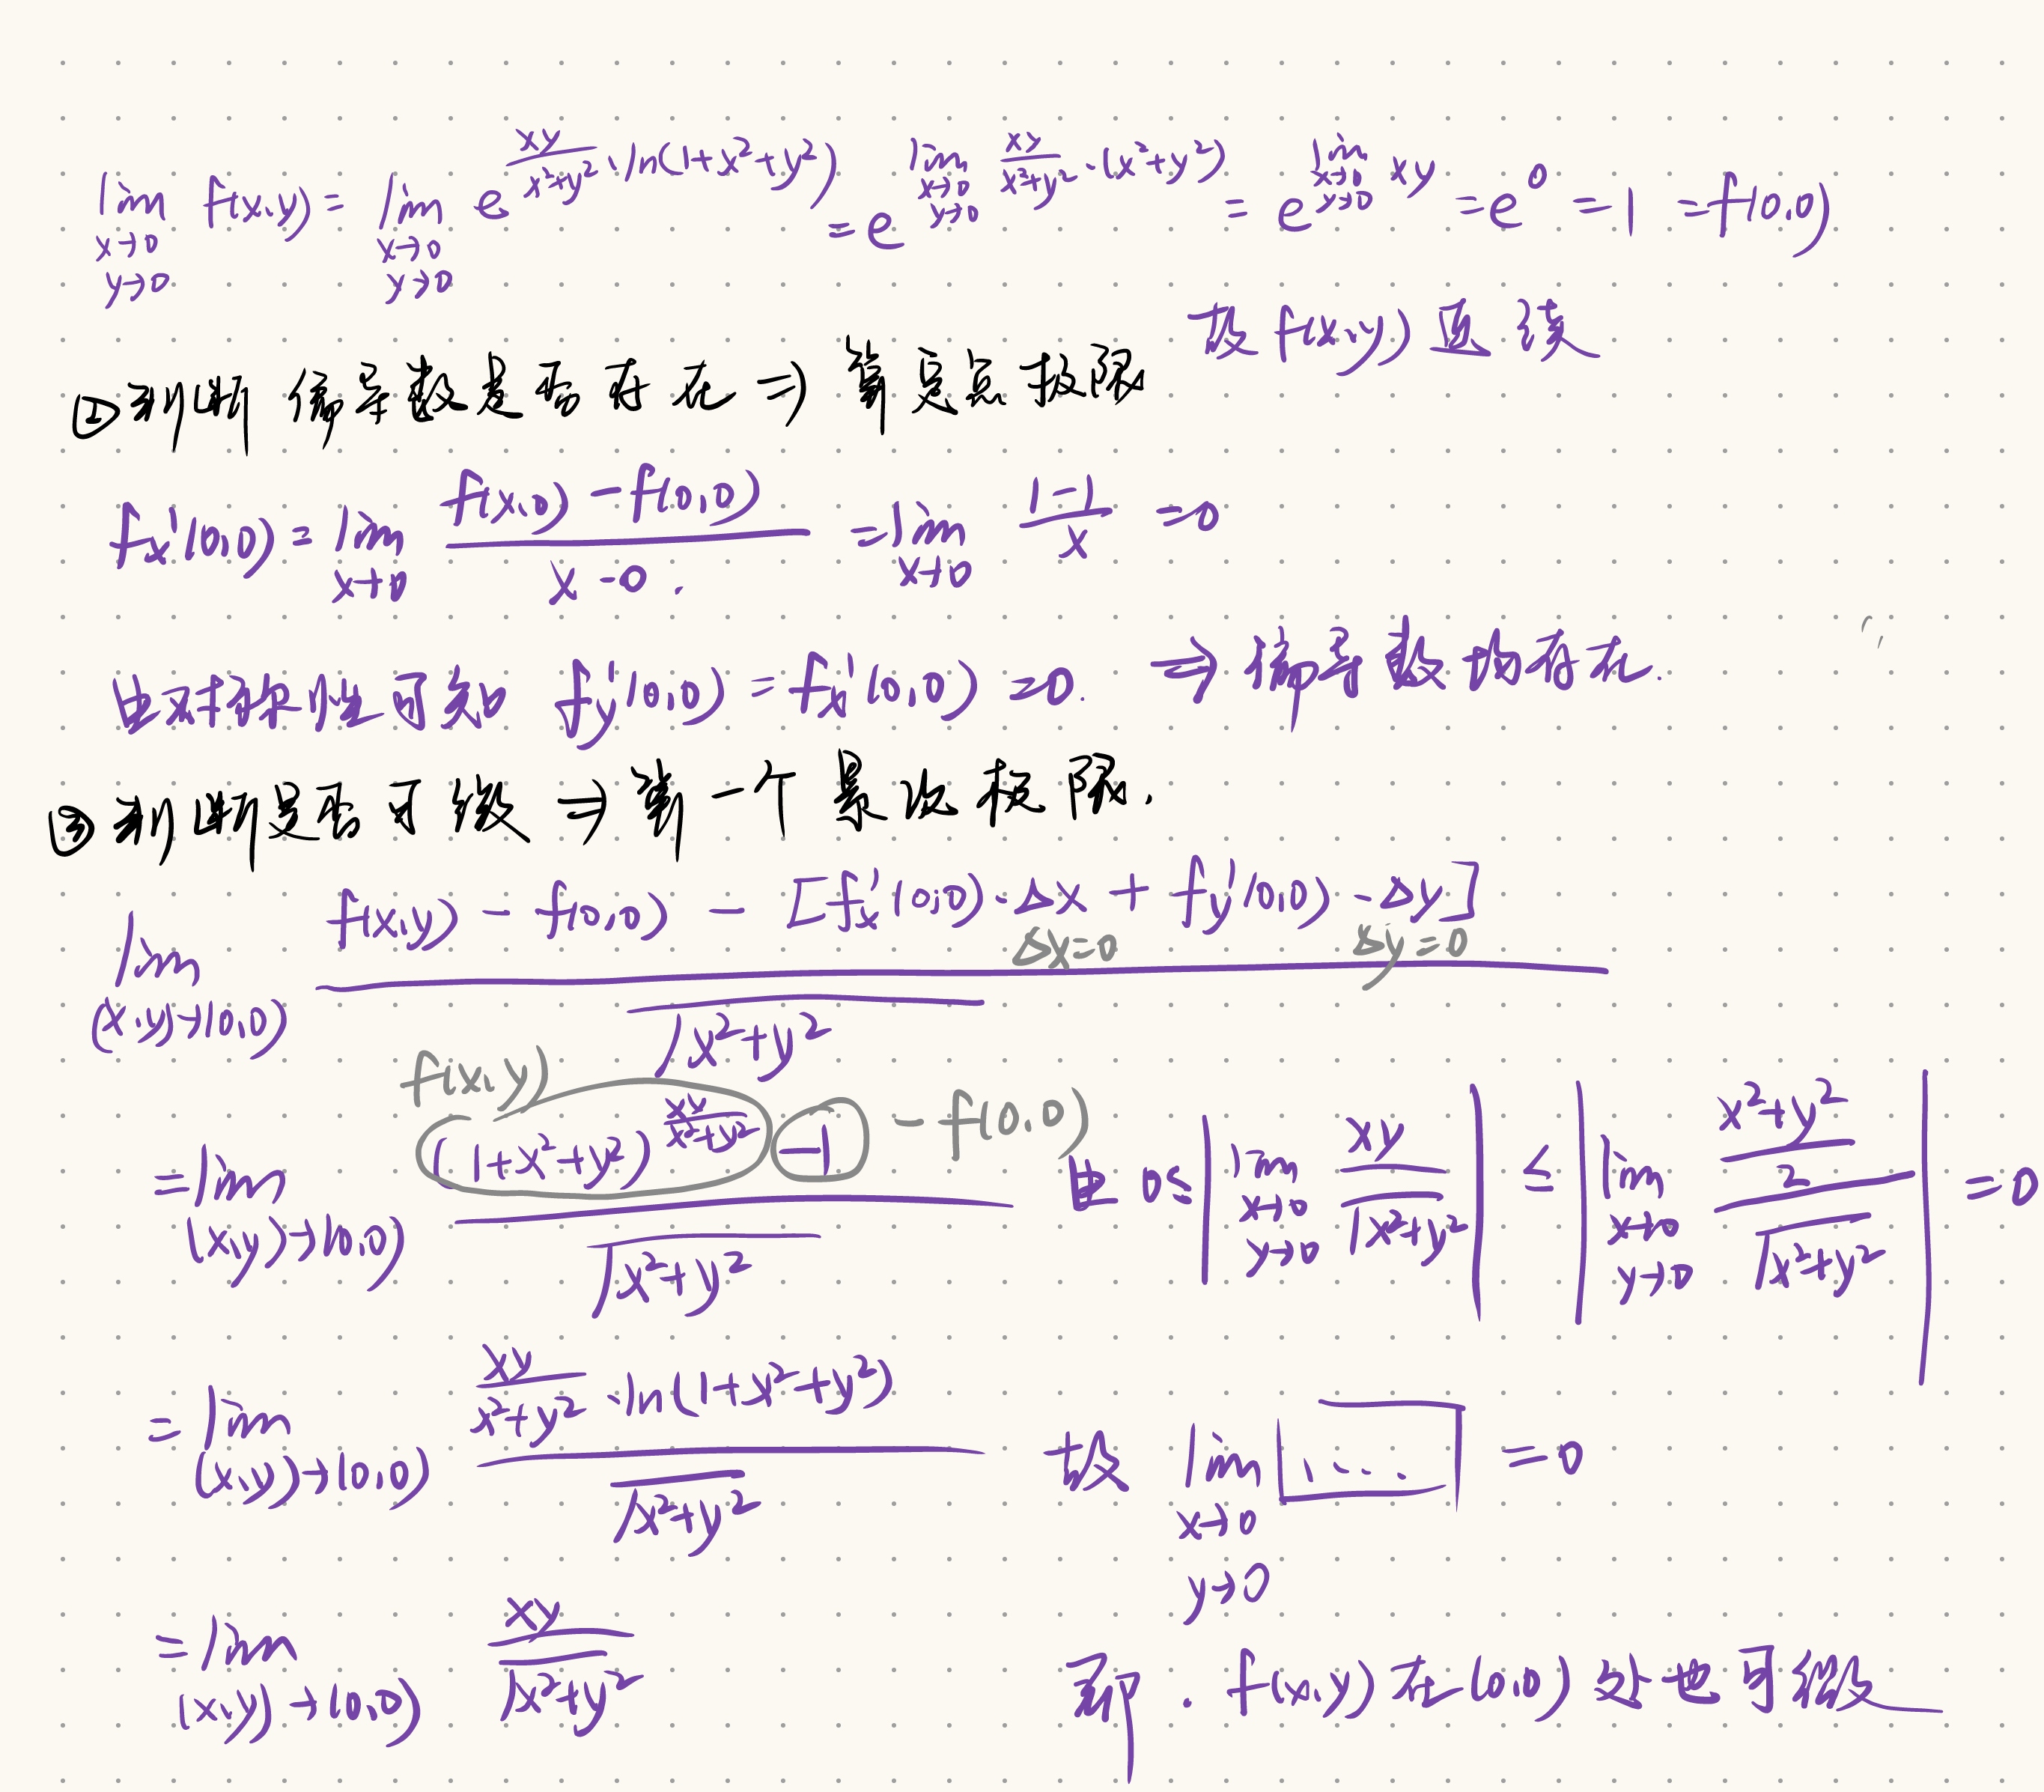 lim_{x→0, y→0} f(x,y) = lim_{x→0, y→0} e^{xy/(x²+y²)·ln(1+x²+y²)} = e^{lim_{x→0, y→0} xy/(x²+y²)·(x²+y²)} = e^{lim_{x→0, y→0} xy} = e^0 = 1 = f(0,0)
故 f(x,y) 连续
②判断偏导数是否存在 ⇒ 算定点极限
fx'(0,0) = lim_{x→0} (f(x,0) - f(0,0))/(x-0) = lim_{x→0} (1-1)/x = 0
由对称性可知 fy'(0,0) = fx'(0,0) = 0. ⇒ 偏导数均存在.
③判断是否可微 ⇒ 算一个累次极限.
lim_{(x,y)→(0,0)} (f(x,y) - f(0,0) - [fx'(0,0)·Δx + fy'(0,0)·Δy])/√(x²+y²)
Δx=0 Δy=0
f(x,y) - f(0,0)
= lim_{(x,y)→(0,0)} ((1+x²+y²)^{xy/(x²+y²)} - 1)/√(x²+y²)
由 0 ≤ |lim_{x→0, y→0} xy/√(x²+y²)| ≤ |lim_{x→0, y→0} ((x²+y²)/2)/√(x²+y²)| = 0
= lim_{(x,y)→(0,0)} (xy/(x²+y²)·ln(1+x²+y²))/√(x²+y²)
故 lim_{x→0, y→0} [....] = 0
= lim_{(x,y)→(0,0)} xy/√(x²+y²)
即. f(x,y) 在(0,0) 处也可微